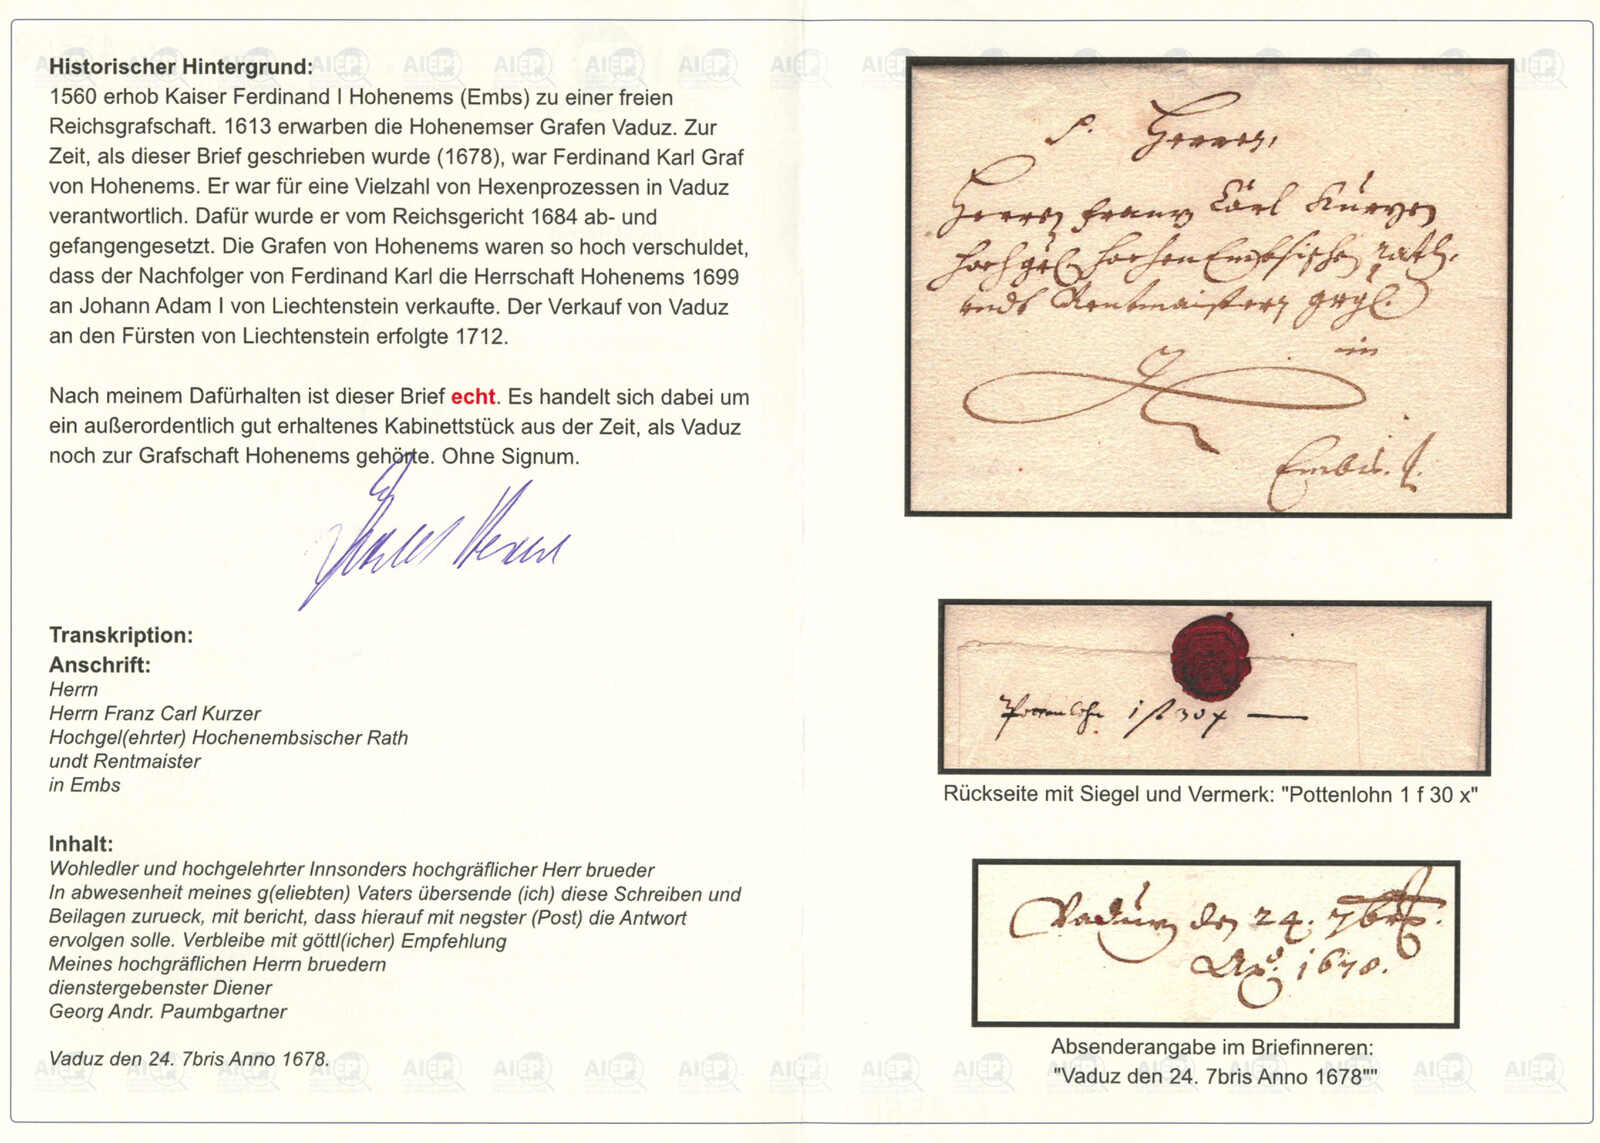 Historischer Hintergrund:
1560 erhob Kaiser Ferdinand I Hohenems (Embs) zu einer freien
Reichsgrafschaft. 1613 erwarben die Hohenemser Grafen Vaduz. Zur
Zeit, als dieser Brief geschrieben wurde (1678), war Ferdinand Karl Graf
von Hohenems. Er war für eine Vielzahl von Hexenprozessen in Vaduz
verantwortlich. Dafür wurde er vom Reichsgericht 1684 ab- und
gefangengesetzt. Die Grafen von Hohenems waren so hoch verschuldet,
dass der Nachfolger von Ferdinand Karl die Herrschaft Hohenems 1699
an Johann Adam I von Liechtenstein verkaufte. Der Verkauf von Vaduz
an den Fürsten von Liechtenstein erfolgte 1712.
Nach meinem Dafürhalten ist dieser Brief echt. Es handelt sich dabei um
ein außerordentlich gut erhaltenes Kabinettstück aus der Zeit, als Vaduz
noch zur Grafschaft Hohenems gehörte. Ohne Signum.
Transkription:
Anschrift:
Herrn
Herrn Franz Carl Kurzer
Hochgel(ehrter) Hochenembsischer Rath
undt Rentmaister
in Embs
Inhalt:
Wohledler und hochgelehrter Innsonders hochgräflicher Herr brueder
In abwesenheit meines g(eliebten) Vaters übersende (ich) diese Schreiben und
Beilagen zurueck, mit bericht, dass hierauf mit negster (Post) die Antwort
ervolgen solle. Verbleibe mit göttl(icher) Empfehlung
Meines hochgräflichen Herrn bruedern
dienstergebenster Diener
Georg Andr. Paumbgartner
Vaduz den 24. 7bris Anno 1678.
Herren
Herren Franz Carl Kurzen
hochgel hochenEmbsischen Rath
undt Rentmaistern
in
Embs.
Pottenlohn 1 f 30 x
Rückseite mit Siegel und Vermerk: "Pottenlohn 1 f 30 x"
Vaduz den 24. 7bris
Ao 1678.
Absenderangabe im Briefinneren:
"Vaduz den 24. 7bris Anno 1678""
AIEP